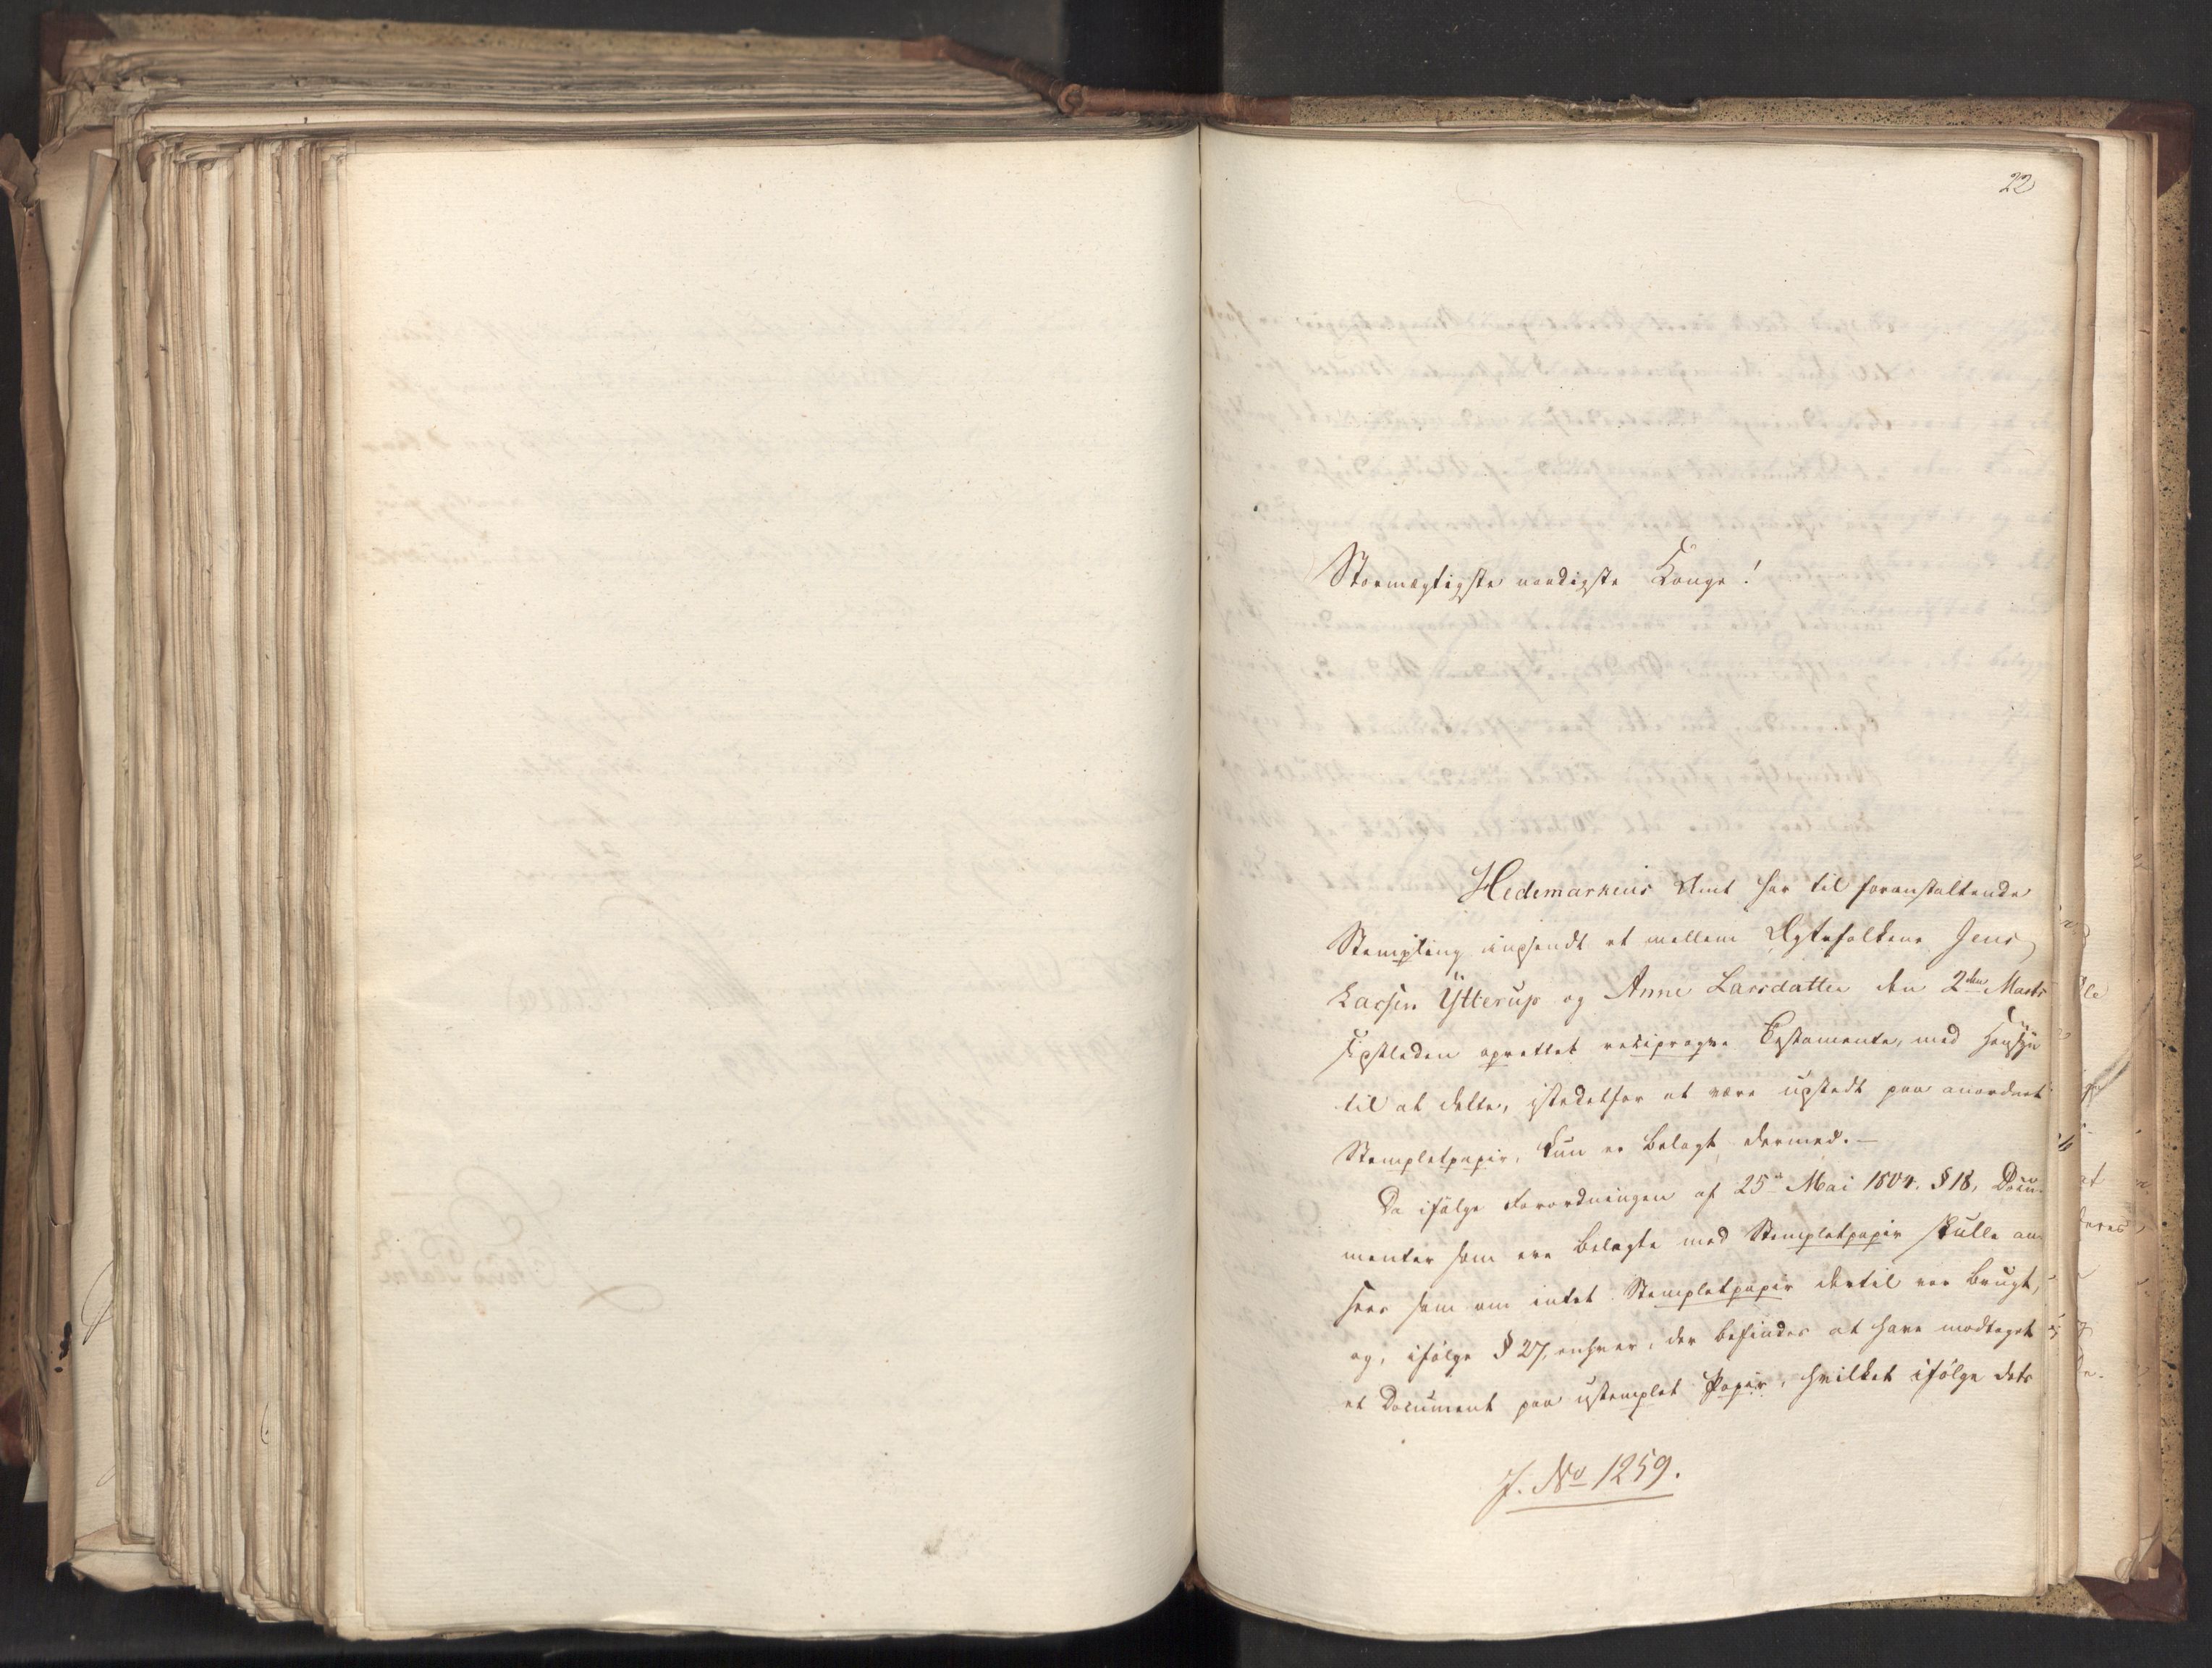 22
Stormægtigste naadigste Konge!
Hedemarkens Amt har til foranstaltende
Stempling indsendt et mellem Ægtefolkene Jens
Larsen Ÿtterup og Anne Larsdatter den 2den Marts
sidstleden oprettet reciproqve Testamente, med Hensÿn
til at dette, istedetfor at være udstedt paa anordnet
Stempletpapir, kun er belagt dermed.—
Da ifølge Forordningen af 25de Mai 1804. §18, Docu-
menter som ere belagte med Stempletpapir skulle an-
sees som om intet Stempletpapir dertil var brugt,
og, ifølge § 27, enhver, der befindes at have modtaget
et Document paa ustemplet Papir, hvilket ifølge dets
J. No 1259.